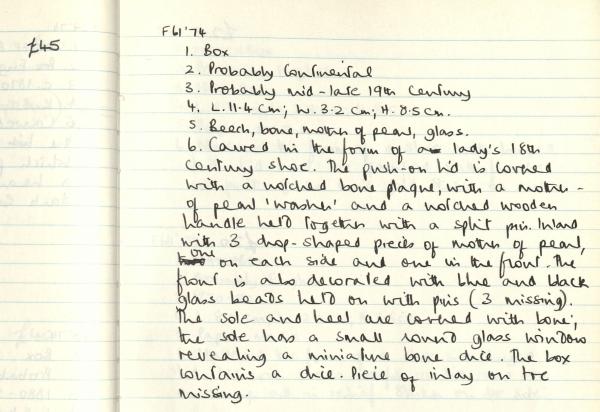 £45
F61'74
1. Box
2. Probably Continental
3. Probably mid-late 19th Century
4. L. 11.4 cm; W. 3.2 cm; H. 8.5 cm.
5. Beech, bone, mother of pearl, glass.
6. Carved in the form of a lady's 18th
century shoe. The push-on lid is covered
with a notched bone plaque, with a mother-
of pearl 'washer' and a notched wooden
handle held together with a split pin. Inlaid
with 3 drop-shaped pieces of mother of pearl,
one on each side and one in the front. The
front is also decorated with blue and black
glass beads held on with pins (3 missing).
The sole and heel are covered with bone;
the sole has a small round glass window
revealing a miniature bone dice. The box
contains a dice. Piece of inlay on toe
missing.